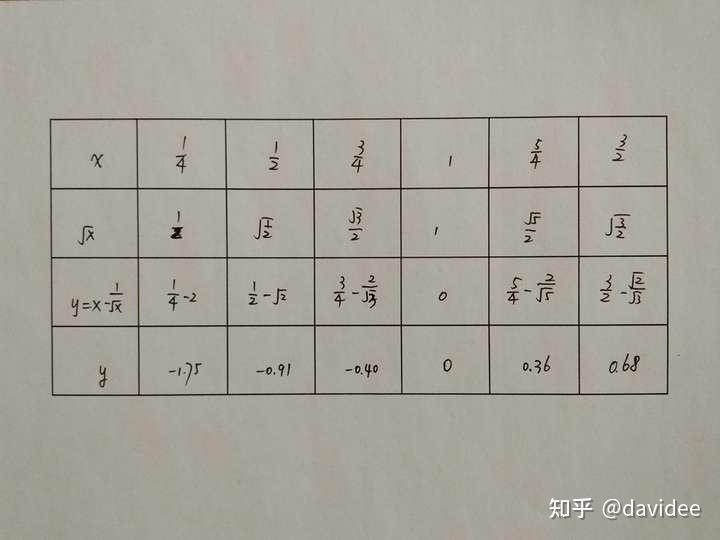 x 1/4 1/2 3/4 1 5/4 3/2
√x 1/2 √(1/2) √3/2 1 √5/2 √(3/2)
y=x-1/√x 1/4-2 1/2-√2 3/4-2/√3 0 5/4-2/√5 3/2-√2/√3
y -1.75 -0.91 -0.40 0 0.36 0.68
知乎 @davidee